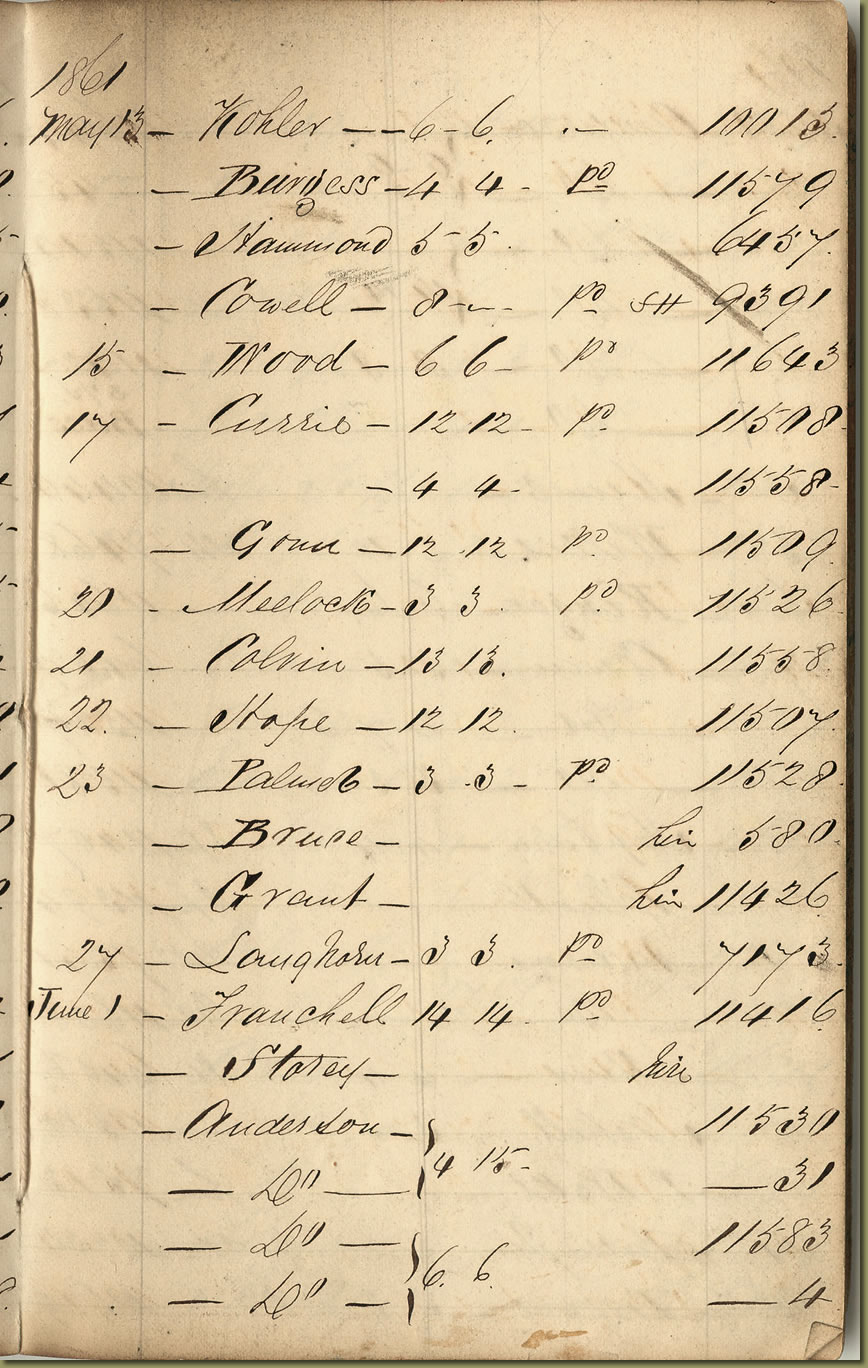 1861
May 13 — Kohler — — 6 - 6. . — 10013.
— Burgess — 4 4 - pd 11579
— Hammond 5 - 5 . 6457.
— Cowell — 8 - — - pd SH 9391
15 — Wood — 6 6 — pd 11643
17 — Currie — 12 12 - pd 11508-
— — 4 4 - 11558-
— Gouu — 12 . 12 . pd 11509.
20 - Meelock - 3 3 . pd 11526
21 — Colvin — 13 13. 11558.
22. — Hope — 12 12 . 11507.
23 — Palmer — 3 . 3 - pd 11528.
— Bruce — hin 580.
— Grant — hin 11426
27 — Laughorn — 3 3 . pd 7173.
June 1 — Franchell 14 14 . pd 11416
— Storey — hire
— Anderson — 11530
— Do — } 4 15 - — 31
— Do — 11583
— Do — } 6. 6 — 4